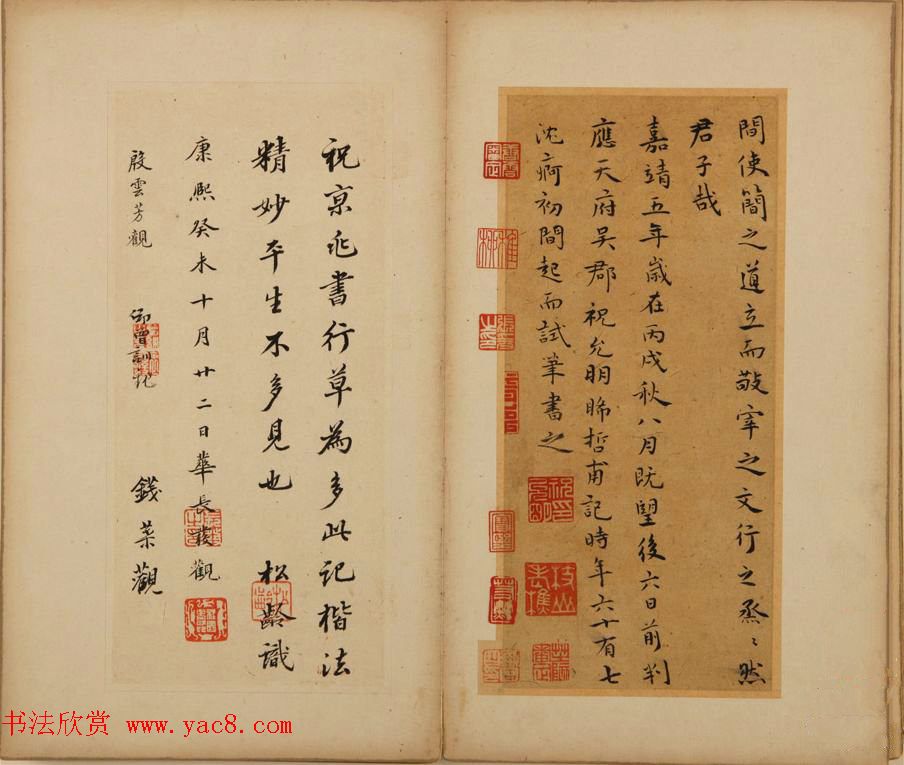 間使簡之道立而敬宰之文行之烝〻然
君子哉
嘉靖五年歲在丙戌秋八月既望後六日前判
應天府吳郡祝允明晞哲甫記時年六十有七
沈痾初間起而試筆書之
祝京兆書行草為多此記楷法
精妙平生不多見也 松齡識
康熙癸未十月廿二日華長發觀
殷雲芳觀 鄒曾訓記 錢棻觀
书法欣赏 www.yac8.com